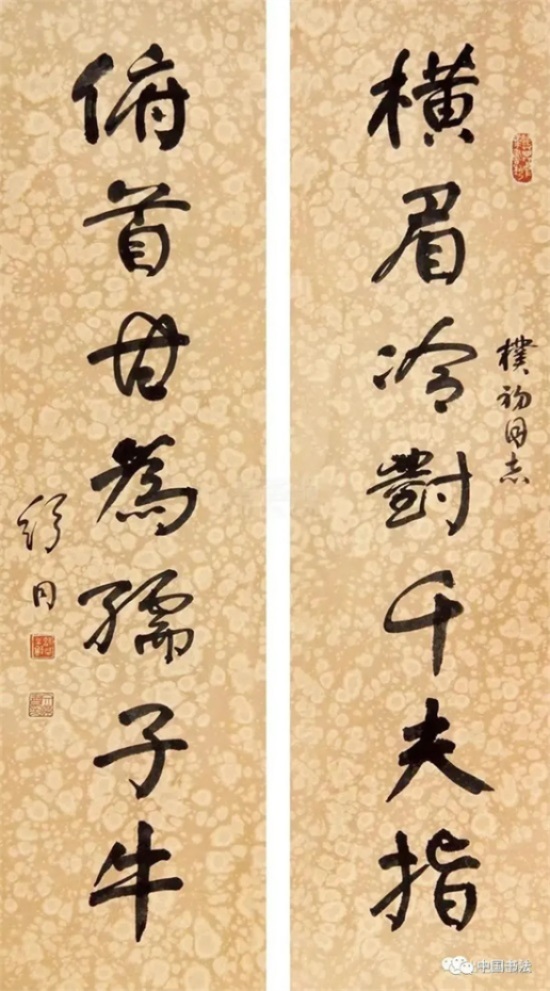 横眉冷對千夫指
樸初同志
俯首甘為孺子牛
舒同
中国书法